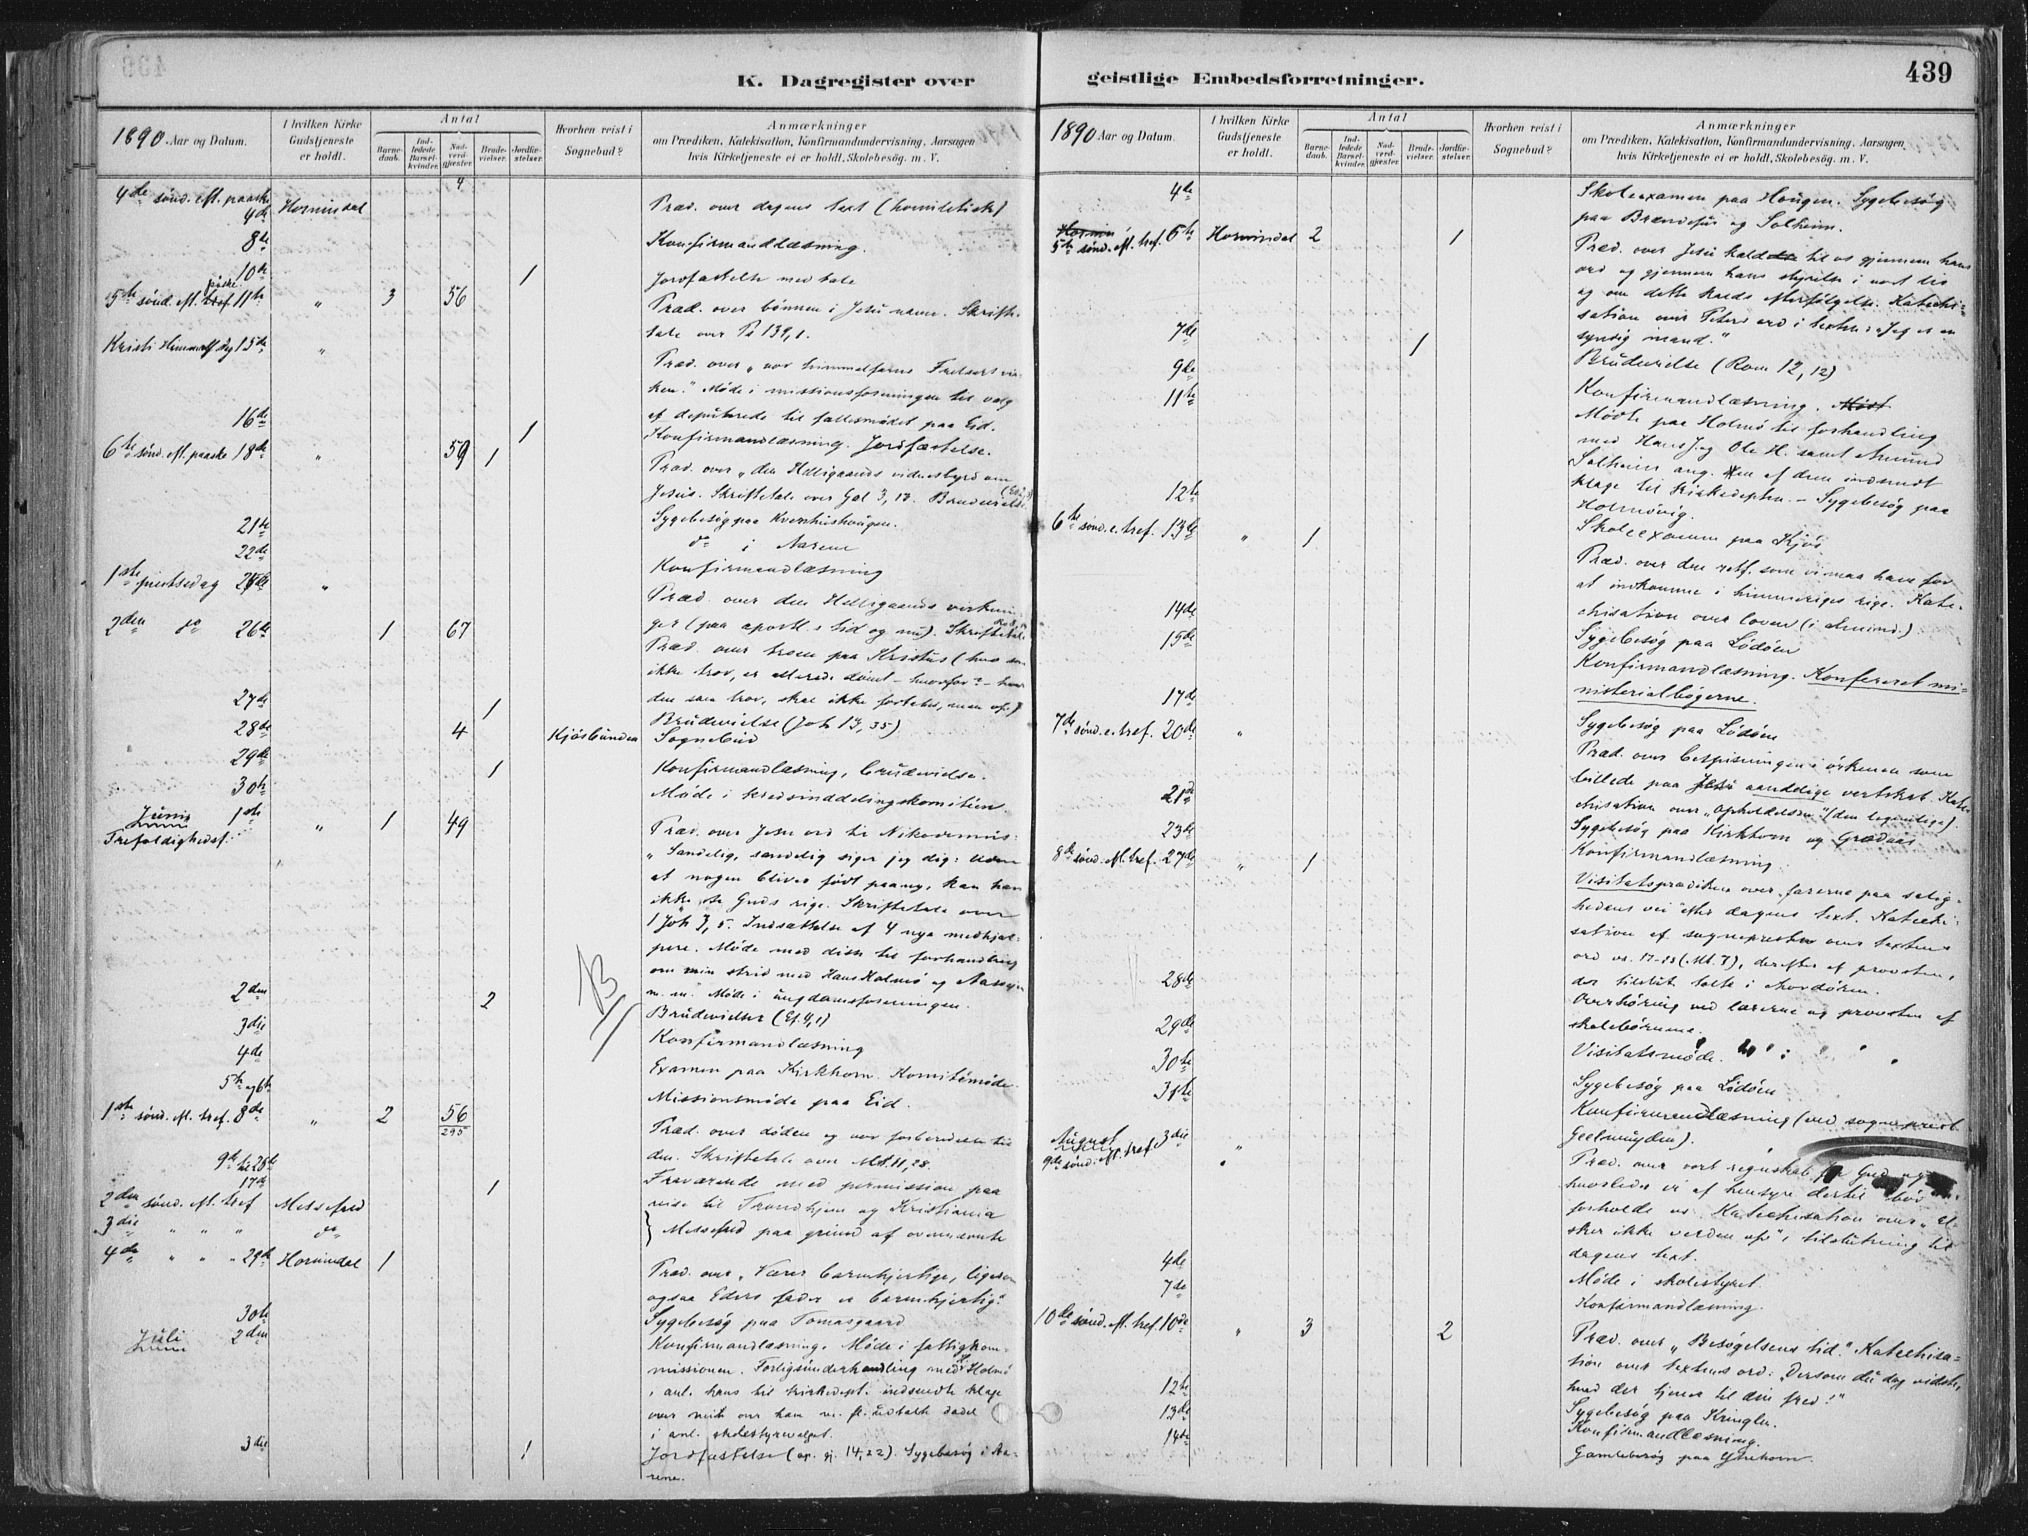 K. Dagregister over
1890 Aar og Datum.
I hvilken Kirke Gudstjeneste er holdt.
Antal
Barnedaab.
Indledede Barselkvinder.
Nadverdgjester.
Brudevielser.
Jordfæstelser.
Hvorhen reist i Sognebud?
Anmærkninger
om Prædiken, Katekisation, Konfirmandundervisning, Aarsagen
hvis Kirketjeneste ei er holdt, Skolebesøg. m. V.
4de sønd. eft. paaske 4de Hornindal Præd. over dagens text (homiletisk)
8de Konfirmandlæsning.
10de 1 Jordfæstelse med tale
5te sønd. eft. påske 11te " 3 56 Præd. over bønnen i Jesu navn. Skrifte-
tale over Ps 139,1.
Kristi Himmelf. dag 15de " Præd. over "vor himmelfarne Frelsers
Møde i missionsforeningen til valg
af deputerede til fællesmødet paa Eid.
16de 1 Konfirmandlæsning. Jordfæstelse.
6te sønd. eft. paaske 18de " 59 1 Præd. over "den Helligaands vidnesbyrd om
Jesus. Skriftetale over Gal 3,13. Brudevielse
21de Sygebesøg paa Kverhushougen.
22de do i Aarene
Konfirmandlæsning
1ste pintsedag 25de " Præd. over den Helligaands virknin-
ger (paa apostl.s tid og nu). Skriftetale
2den do 26de 1 67 Præd. over troen paa Kristus (hvo som
ikke tror, er allerede dømt – hvorfor? – hver
den som tror, skal ikke fortabes,
27de 1 Brudevielse (Joh 13,35)
28de 4 Kjøsbunden Sognebud
29de 1 Konfirmandlæsning, brudevielse.
30te Møde i kredsinddelingskomiteen.
Juni 1ste " 1 49 Præd. over Jesu ord til Nikodemus:
Trefoldighedsf. "Sandelig, sandelig siger jeg dig: Uden
at nogen bliver født paany, kan han
ikke se Guds rige. Skriftetale over
1 Joh 3,5. Indsættelse af 4 nye medhjæl-
pere. Møde med disse til forhandling
om min strid med Hans Holmø og
m. m. Møde i ungdomsforeningen.
2den 2 Brudevielser (Ef. 4,1)
3die Konfirmandlæsning
4de Examen paa Kirkhorn. Komitémøde.
5te og 6te Missionsmøde paa Eid.
1ste sønd. eft. tref. 8de " 2 56 Præd. over døden og vor forberedelse til
295 den. Skriftetale over Mt. 11,28.
9de til 28de Fraværende med permission paa
17de 1 reise til Trondhjem og Kristiania
2den sønd. eft. tref Messefrid
3die " " " do Messefrid paa grund af ovennævnte
4de " " " 29de Hornindal 1 Præd. over "Værer barmhjertige, ligesom
ogsaa Eders fader er barmhjertig."
30te Sygebesøg paa Tomasgaard
Juli 2den Konfirmandlæsning. Møde i fattigkom-
missionen. Forligsunderhandling med Holmø
i anl. hans til kirkedept. indsendte klage
over mit over ham m. fl. udtalt dadel
i anl. skolestyrevalget.
3die 1 Jordfæstelse (ap. gj. 14,22). Sygebesøg i Aa-
rene.
B
geistlige Embedsforretninger.
439
1890 Aar og Datum.
I hvilken Kirke Gudstjeneste er holdt.
Antal
Barnedaab.
Indledede Barselkvinder.
Nadverdgjester.
Brudevielser.
Jordfæstelser.
Hvorhen reist i Sognebud?
Anmærkninger
om Prædiken, Katekisation, Konfirmandundervisning, Aarsagen
hvis Kirketjeneste ei er holdt, Skolebesøg. m. V.
4de Skoleexamen paa Hougen. Sygebesøg
paa Brændefur og Solheim.
5te sønd. eft. tref. 6te Hornindal 2 1 Præd. over Jesu kald til os gjennem hans
ord og gjennem hans styrelse i vort liv
og om dette kalds efterfølgelse. Kateki-
sation over Peters ord i texten: "Jeg er en
syndig mand."
7de 1 Brudevielse (Rom 12,12)
9de Konfirmandlæsning.
11te Møde paa Holmø til forhandling
med Hans J. og Ole H. samt Amund
Solheim ang. en af dem indsendt
klage til Kirkedepten. – Sygebesøg paa
Holmøvig.
12te Skoleexamen paa Kjøs
6te sønd. e. tref. 13de " 1 Præd. over den retf. som vi maa have for
at indkomme i himmeriges rige. Kate-
chisation over loven (i almind.)
14de Sygebesøg paa Lødøen
15de Konfirmandlæsning. Konfereret mi-
nisterialbøgerne.
17de Sygebesøg paa Lødøen
7de sønd. e. tref. 20de " Præd. over bespisningen i ørkenen som
billede paa Jesu aandelige vertskab. Kate-
chisation over "opholdelsen" (den legemlige).
21de Sygebesøg paa Kirkhorn og Grødaas
23de Konfirmandlæsning.
8de sønd. eft. tref. 27de " 1 Visitatsprædiken over "farerne paa salig-
hedens vei" efter dagens text. Kateki-
sation af sognepresten over textens
ord vs. 17-18 (Mt. 7), derefter af provsten,
der tilslut talte i kordøren.
28de Overhøring ved lærerne og provsten af
skolebørnene.
29de Visitatsmøde.
30te Sygebesøg paa Lødøen
31te Konfirmandlæsning (ved sogneprest
Geelmuyden).
August 3die "
9de sønd. eft. tref. Præd. over vort regnskab for Gud og
hvorledes vi af hensyn dertil bør
forholde os. Katechisation over "El-
sker ikke verden osv" i tilslutning til
dagens text.
4de Møde i skolestyret
7de Konfirmandlæsning.
10de sønd. eft. tref. 10de " 3 2 Præd. over "Besøgelsens tid." Katechisa-
tion over textens ord: "Dersom du dog vidste,
hvad der tjener til din fred!"
12te Sygebesøg paa Kringlen.
13de Konfirmandlæsning.
14de Gamlebesøg paa Ytrehorn.